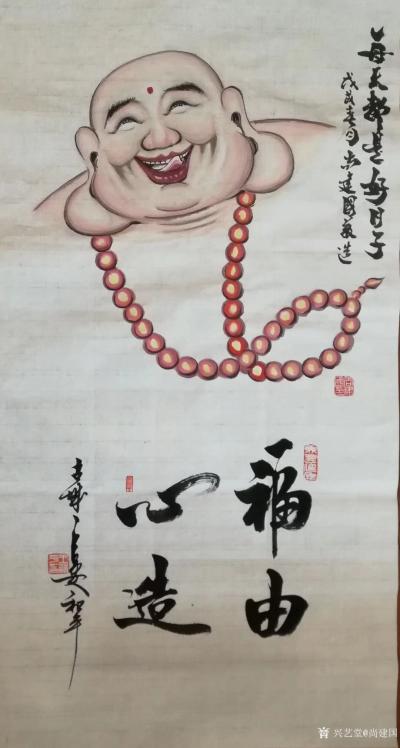 每天都是好日子
戊戌春月尚建国敬造
福由
心造
兴艺堂@尚建国